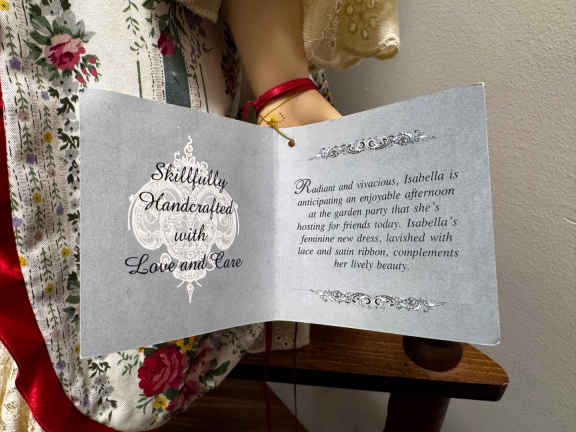 Skillfully
Handcrafted
with
Love and Care
Radiant and vivacious, Isabella is
anticipating an enjoyable afternoon
at the garden party that she's
hosting for friends today. Isabella's
feminine new dress, lavished with
lace and satin ribbon, complements
her lively beauty.